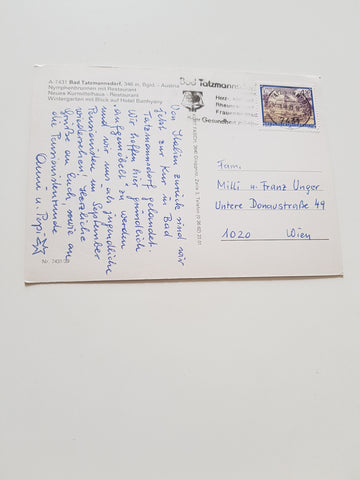 A-7431 Bad Tatzmannsdorf, 346 m, Bgld. - Austria
Nymphenbrunnen mit Restaurant
Neues Kurmittelhaus - Restaurant
Wintergarten mit Blick auf Hotel Batthyány
Von Italien zurück sind wir
jetzt zur Kur in Bad
Tatzmannsdorf gelandet.
Wir hoffen hier gründlich
aufgemöbelt zu werden
und wir uns als jugendliche
Pensionisten im September
wiedersehen! Herzliche
Grüße an Euch, sowie an
die Pensionistenrunde
Anni u. Pepi
Nr. 7431/
Bad Tatzmanns
Herz-
Rheuma
Frauen
Gesundhe
7431
Fam.
Milli u. Franz Unger
Untere Donaustraße 49
1020 Wien